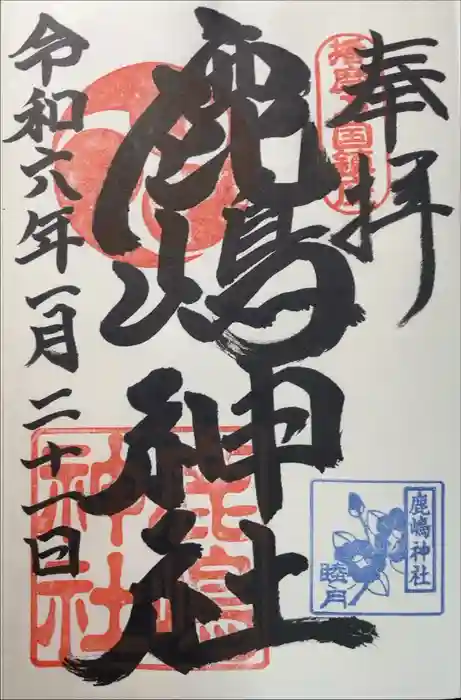 奉拝
鹿嶋神社
令和六年一月二十一日
鹿嶋神社
鹿嶋神社
睦月